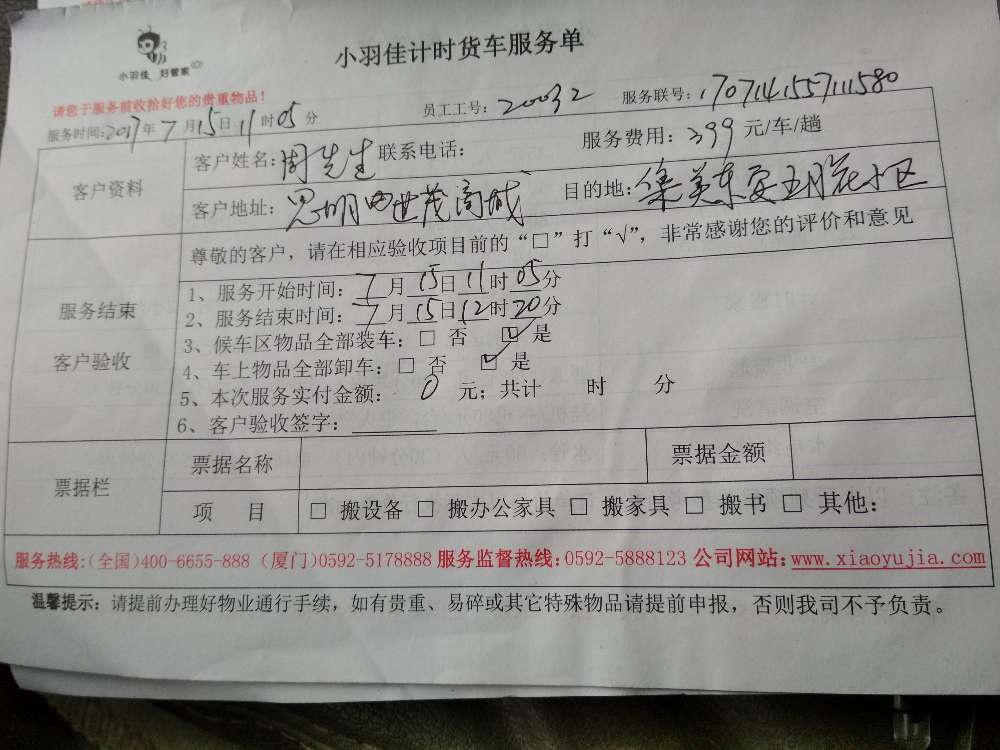 小羽佳计时货车服务单
小羽佳 好管家
请您于服务前收拾好您的贵重物品!
员工工号: 20032 服务联号: 170714155711580
服务时间:2017年7月15日11时05分
客户资料
客户姓名:周先生 联系电话: 服务费用: 399 元/车/趟
客户地址: 思明区世茂商城 目的地: 集美东安五月花小区
尊敬的客户，请在相应验收项目前的“□”打“√”，非常感谢您的评价和意见
服务结束
客户验收
1、服务开始时间: 7月15日11时05分
2、服务结束时间: 7月15日12时20分
3、候车区物品全部装车: □ 否 ☑ 是
4、车上物品全部卸车: □ 否 ☑ 是
5、本次服务实付金额: 0 元; 共计 时 分
6、客户验收签字:
票据栏
票据名称 票据金额
项 目 □ 搬设备 □ 搬办公家具 □ 搬家具 □ 搬书 □ 其他:
服务热线:(全国)400-6655-888 (厦门)0592-5178888 服务监督热线: 0592-5888123 公司网站: www.xiaoyujia.com
温馨提示: 请提前办理好物业通行手续，如有贵重、易碎或其它特殊物品请提前申报，否则我司不予负责。